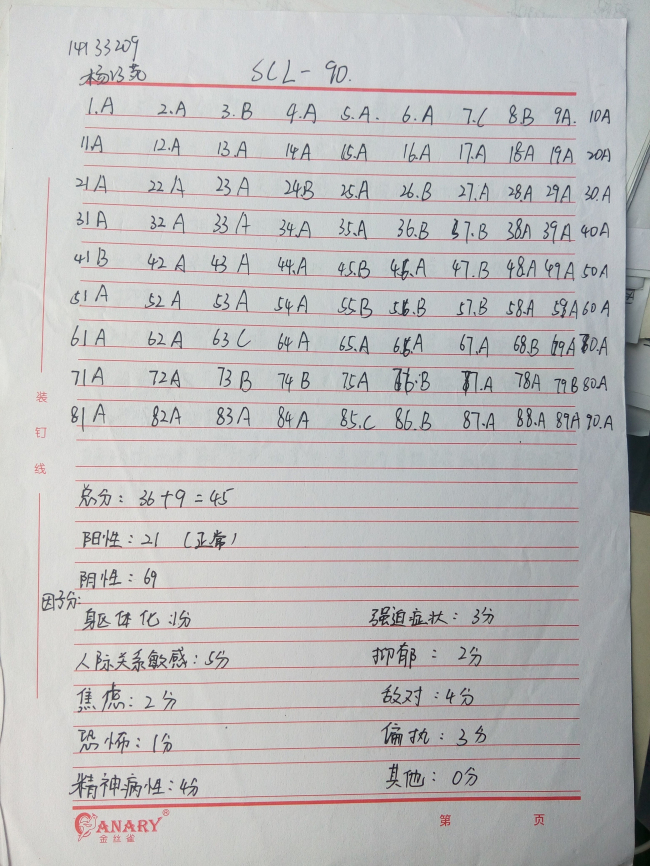 14133209
杨
SCL-90.
1.A 2.A 3.B 4.A 5.A. 6.A 7.C 8.B 9A. 10A
11.A 12.A 13.A 14A 15.A 16.A 17.A 18A 19A 20A
21A 22A 23A 24B 25.A 26.B 27.A 28.A 29A 30.A
31A 32A 33A 34.A 35.A 36.B 37.B 38A 39A 40A
41B 42A 43A 44.A 45.B 46.A 47.B 48.A 49A 50A
51A 52A 53A 54A 55B 56.B 57.B 58.A 59A 60A
61A 62A 63C 64A 65.A 66.A 67.A 68.B 69A 70.A
71A 72A 73B 74B 75A 76.B 77.A 78A 79B 80A
81A 82A 83A 84A 85.C 86.B 87.A 88.A 89A 90.A
总分: 36+9=45
阳性: 21 (正常)
阴性: 69
因子分:
躯体化: 1分 强迫症状: 3分
人际关系敏感: 5分 抑郁: 2分
焦虑: 2分 敌对: 4分
恐怖: 1分 偏执: 3分
精神病性: 4分 其他: 0分
装钉线
CANARY®
金丝雀
第 页